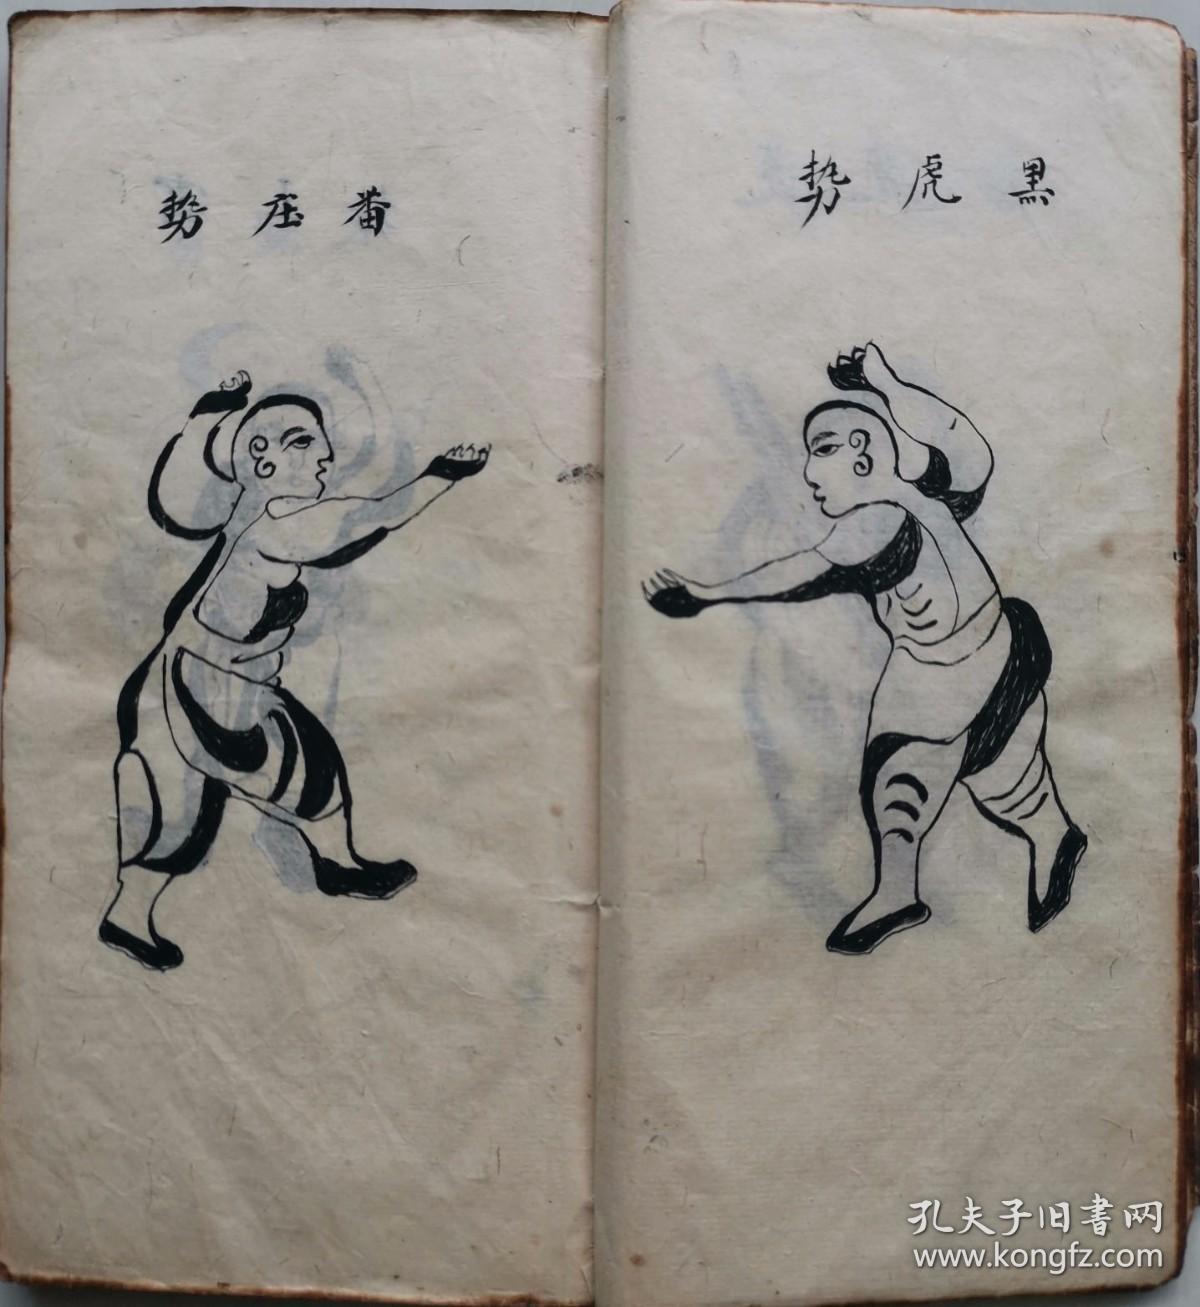 黒虎势
番庄势
孔夫子旧書网
www.kongfz.com